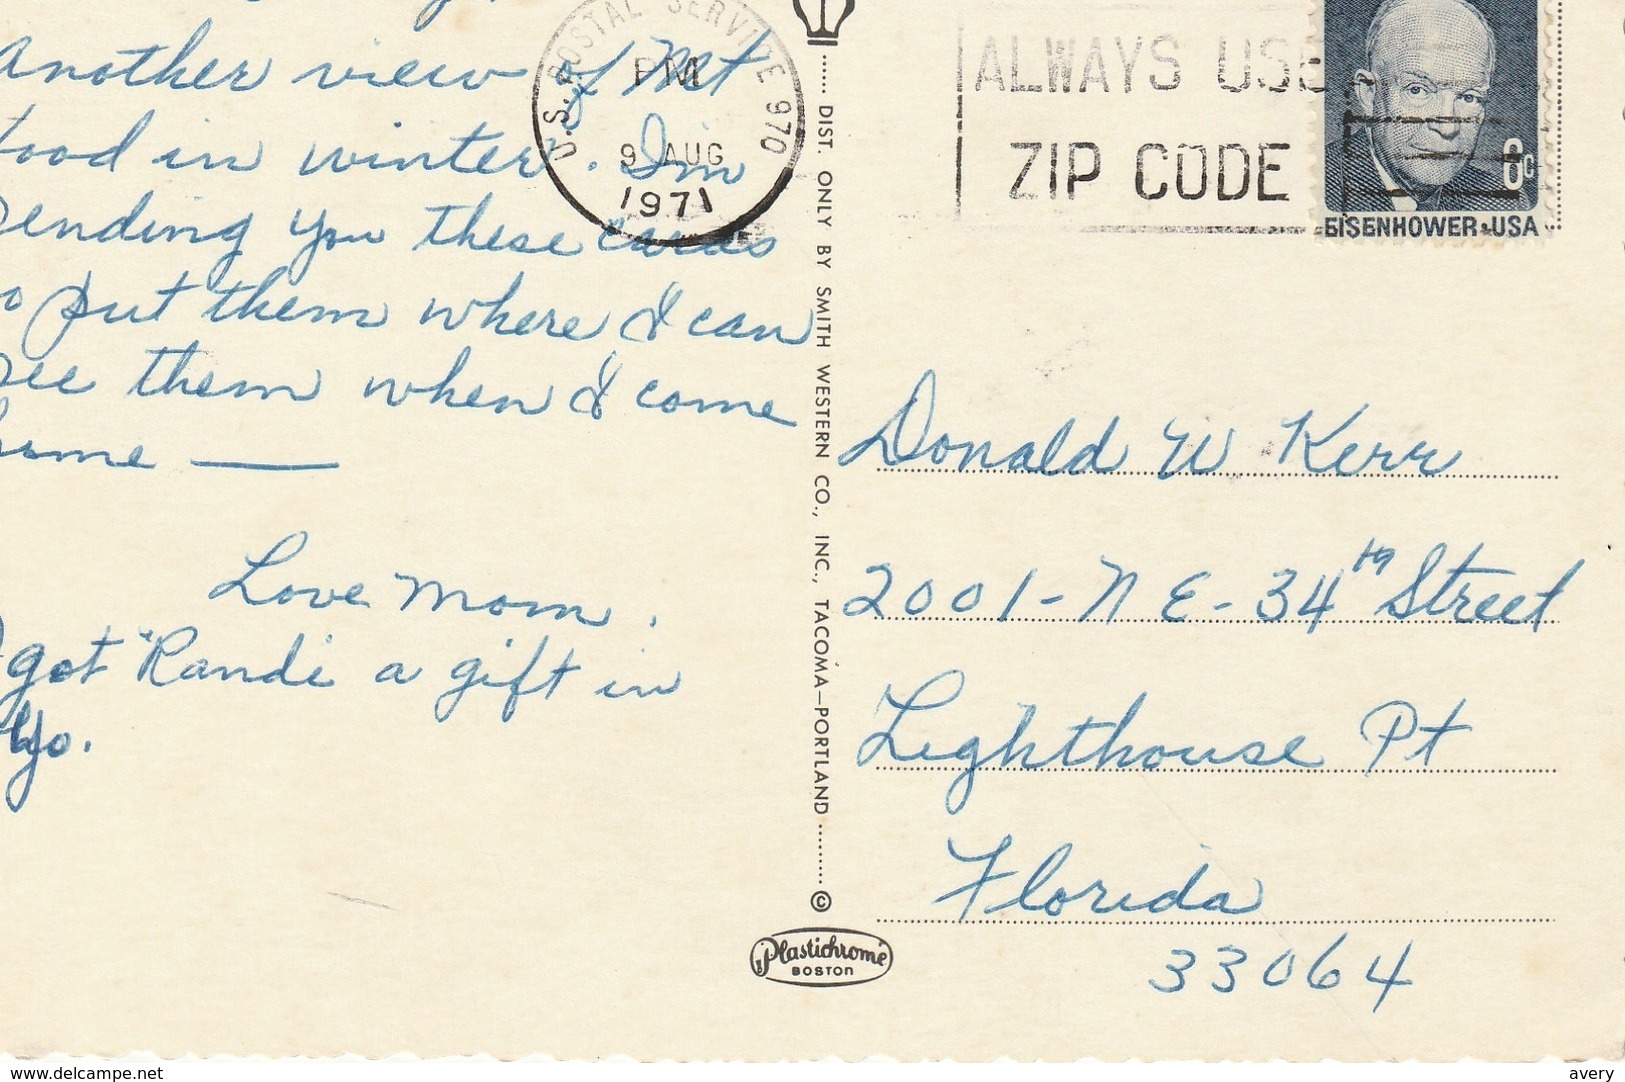 Another view of Mt
ood in winter. I'm
ending you these cards
o put them where I can
see them when I come
home —
Love Mom.
got "Randi a gift in
U.S. POSTAL SERVICE 970
PM
9 AUG
1971
ALWAYS USE
ZIP CODE
6c
EISENHOWER·USA
DIST. ONLY BY SMITH WESTERN CO., INC., TACOMA—PORTLAND
©
Plastichrome
BOSTON
Donald W Kerr
2001 - N E - 34th Street
Lighthouse Pt
Florida
33064
www.delcampe.net
avery